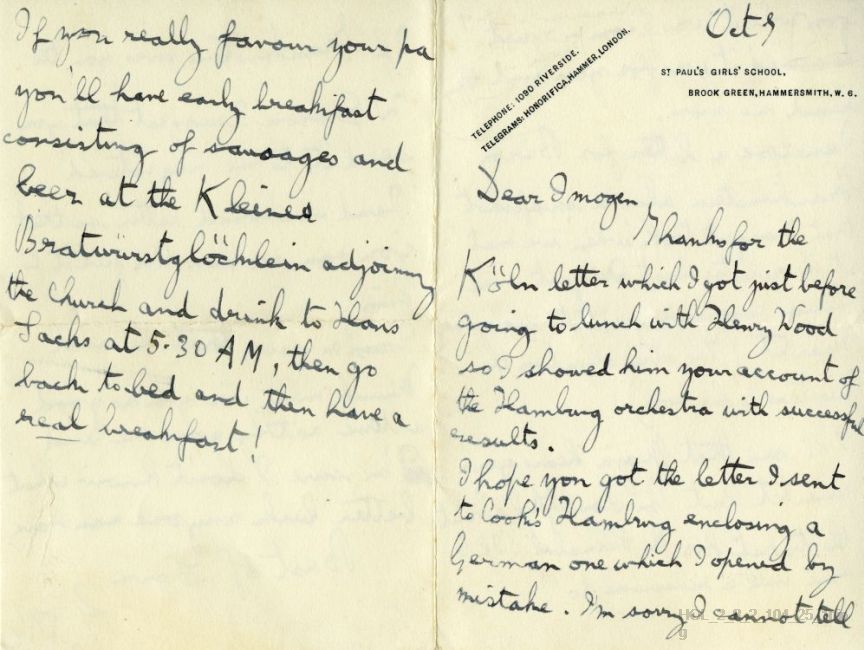 Oct 9
ST PAUL'S GIRLS' SCHOOL,
BROOK GREEN, HAMMERSMITH, W. 6.
TELEPHONE: 1090 RIVERSIDE.
TELEGRAMS: HONORIFICA, HAMMER, LONDON.
Dear Imogen
Thanks for the
Köln letter which I got just before
going to lunch with Henry Wood
so I showed him your account of
the Hamburg orchestra with successful
results.
I hope you got the letter I sent
to Cook's Hamburg enclosing a
German one which I opened by
mistake. I'm sorry I cannot tell
If you really favour your pa
you'll have early breakfast
consisting of sausages and
beer at the Kleines
Bratwürstglöcklein adjoining
the Church and drink to Hans
Sachs at 5.30 AM, then go
back to bed and then have a
real breakfast!